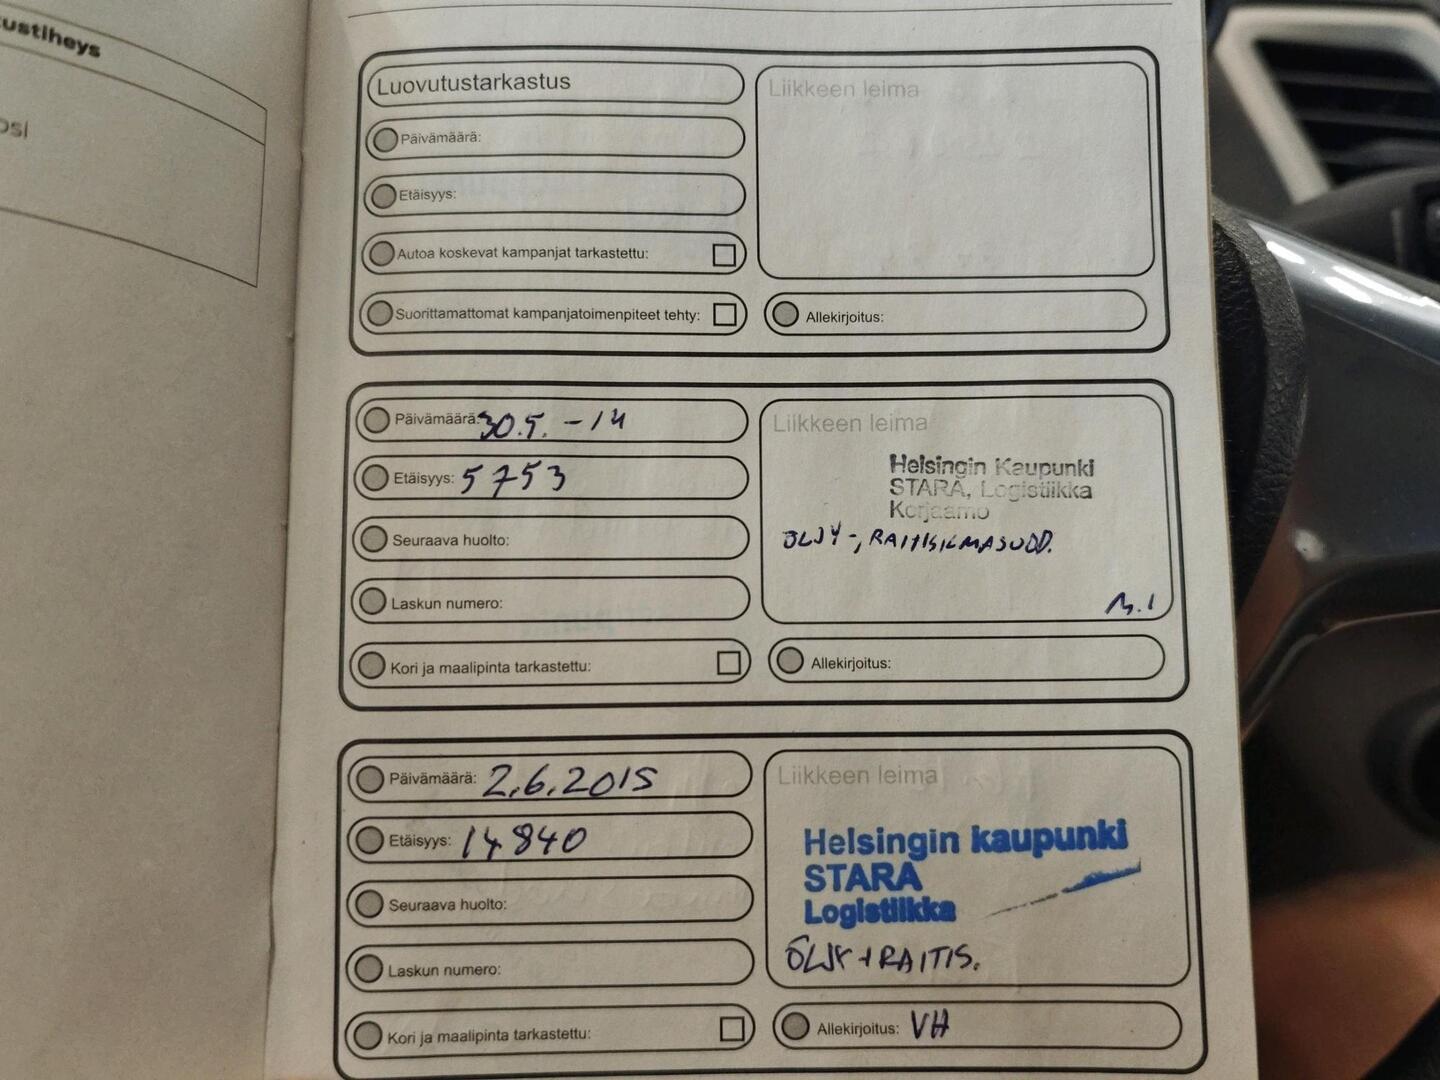 Luovutustarkastus
Päivämäärä:
Etäisyys:
Autoa koskevat kampanjat tarkastettu:
Suorittamattomat kampanjatoimenpiteet tehty:
Liikkeen leima
Allekirjoitus:
Päivämäärä: 30.5. -14
Etäisyys: 5753
Seuraava huolto:
Laskun numero:
Kori ja maalipinta tarkastettu:
Liikkeen leima
Helsingin Kaupunki
STARA, Logistiikka
Korjaamo
ÖLJY-, RAITISILMASUOD.
Allekirjoitus:
Päivämäärä: 2.6.2015
Etäisyys: 14840
Seuraava huolto:
Laskun numero:
Kori ja maalipinta tarkastettu:
Liikkeen leima
Helsingin kaupunki
STARA
Logistiikka
ÖLJY + RAITIS.
Allekirjoitus: VH